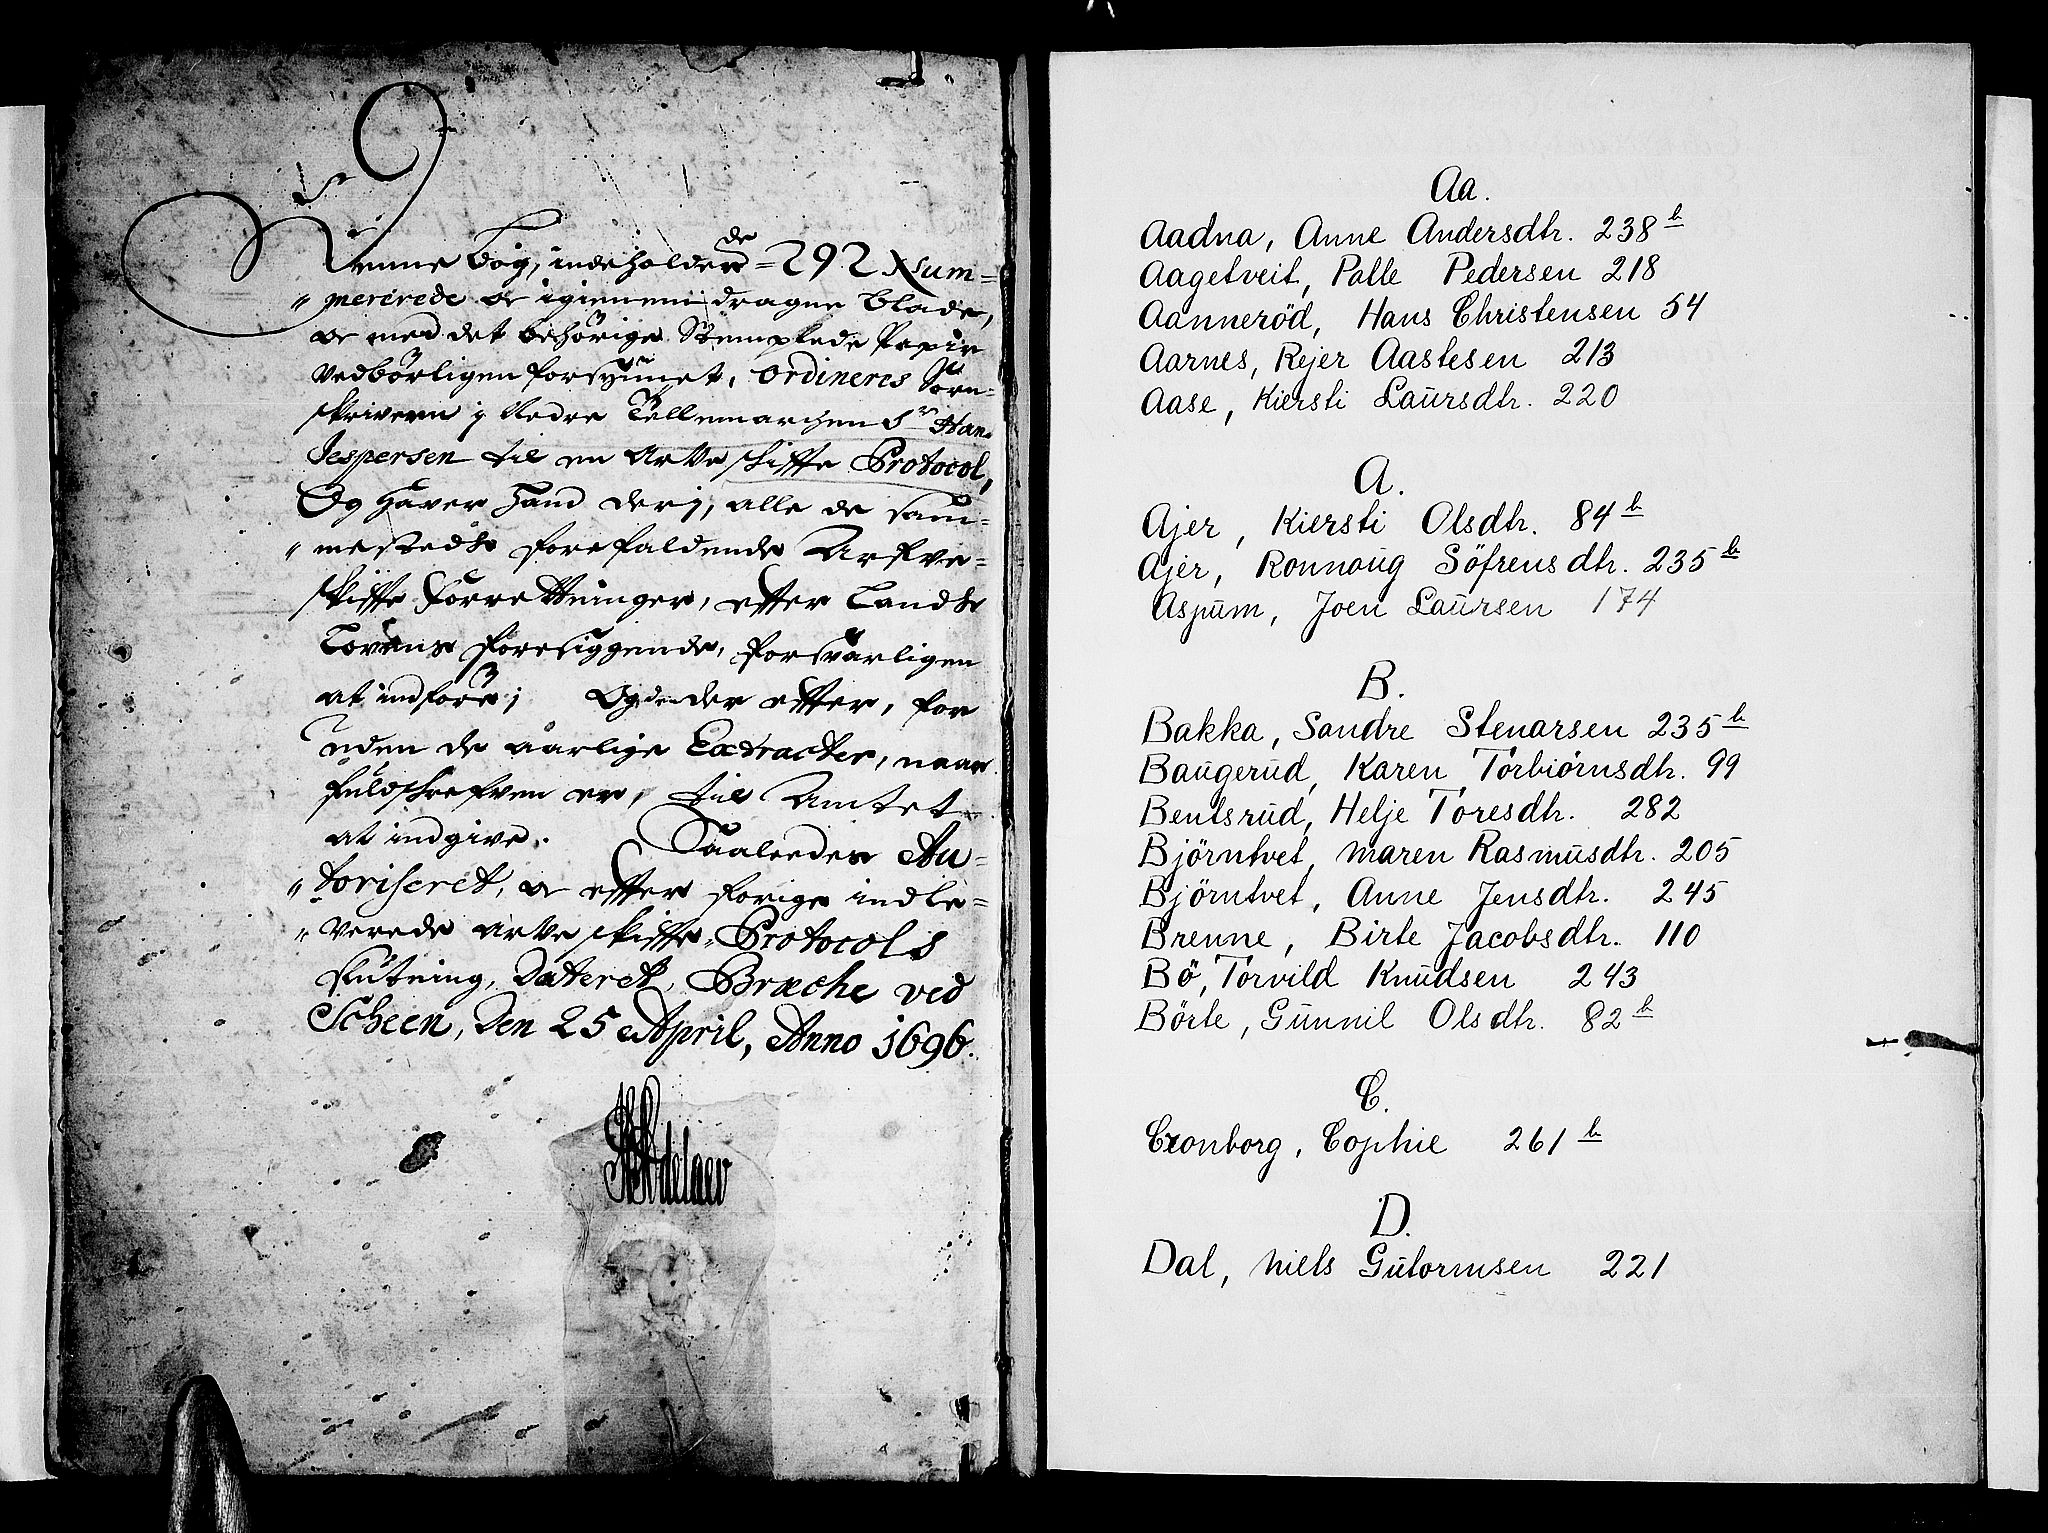 Denne bog, indeholdende 292 Num=
„ mererede oc igiennemdragne blade,
oc med det behörige Stemplede Papir
vedbörligen forsÿnnet, ordineris Sorn=
skrifveren i Nedre Tellemarchen Sr Hans
Jespersen til en Arve skiffte Protocol,
Og haver hand der j, alle de sam=
„ mesteds forefaldende Arfve=
skiffte Forretninger, effter Lands
Lovens foresiggende, forsvarligen
at indföre; Og den der effter, for
uden de aarlige Extracter, naar
fuldskrefven er, til Amtet
at indgive. Saaleedes Au=
„ toriseret, oc effter forige indle=
„ verede arve skiffte Protocols
slutning, Dateret, Bratche ved
Scheen, Den 25 April, Anno 1696.
Adelaer
Aa.
Aadna, Anne Andersdtr. 238 b
Aagetveit, Palle Pedersen 218
Aanneröd, Hans Christensen 54
Aarnes, Rejer Aastesen 213
Aase, Kiersti Laursdtr. 220
A.
Ajer, Kiersti Olsdtr. 84 b
Ajer, Ronnoug Söfrensdtr. 235 b
Aspum, Joen Laursen 174
B.
Bakka, Sondre Stenarsen 235 b
Baugerud, Karen Torbiörnsdtr. 99
Bentsrud, Helje Toresdtr. 282
Björntvet, Maren Rasmusdtr. 205
Björntvet, Anne Jensdtr. 245
Brenne, Birte Jacobsdtr. 110
Bö, Torvild Knudsen 243
Börte, Gunnil Olsdtr. 82 b
C.
Cronborg, Cophie 261 b
D.
Dal, Niels Gutormsen 221